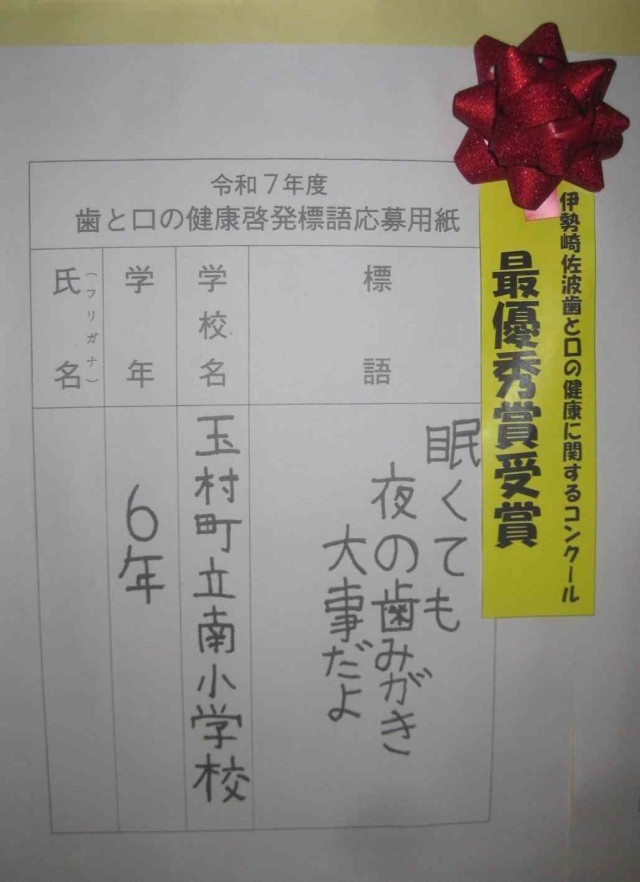 令和7年度
歯と口の健康啓発標語応募用紙
標語
眠くても
夜の歯みがき
大事だよ
学校名
玉村町立南小学校
学年
6年
氏名
(フリガナ)
伊勢崎佐波歯と口の健康に関するコンクール
最優秀賞受賞